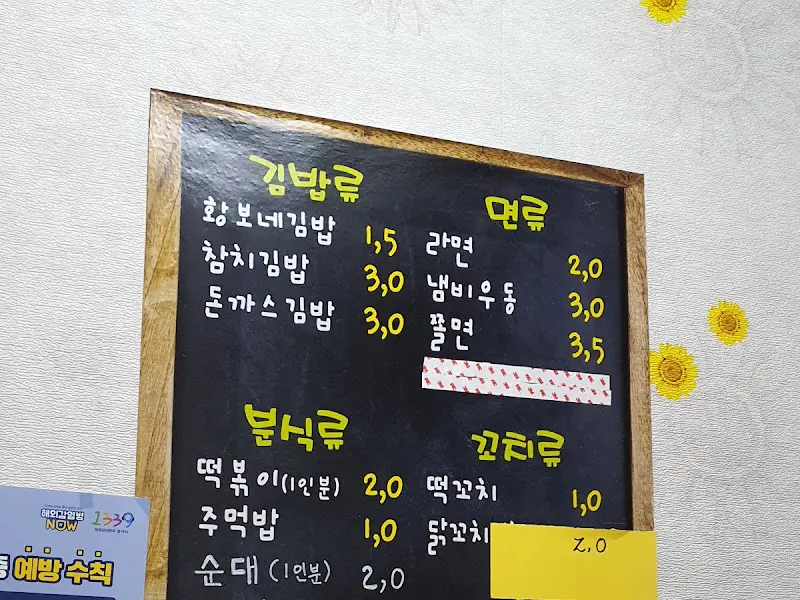 김밥류
황보네김밥 1,5
참치김밥 3,0
돈까스김밥 3,0
면류
라면 2,0
냄비우동 3,0
쫄면 3,5
분식류
떡볶이(1인분) 2,0
주먹밥 1,0
순대(1인분) 2,0
꼬치류
떡꼬치 1,0
닭꼬치 2,0
해외감염병
NOW
1339
예방 수칙